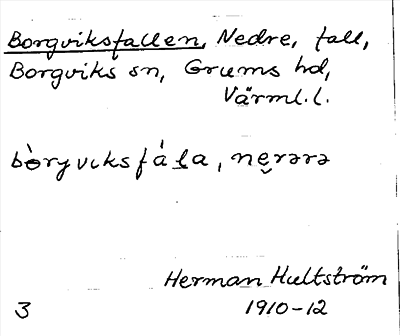 Borgviksfallen, Nedre, fall,
Borgviks sn, Grums hd,
Värml. l.
bòryvıksfál̲a, ne̬rərə
Herman Hultström
3 1910-12